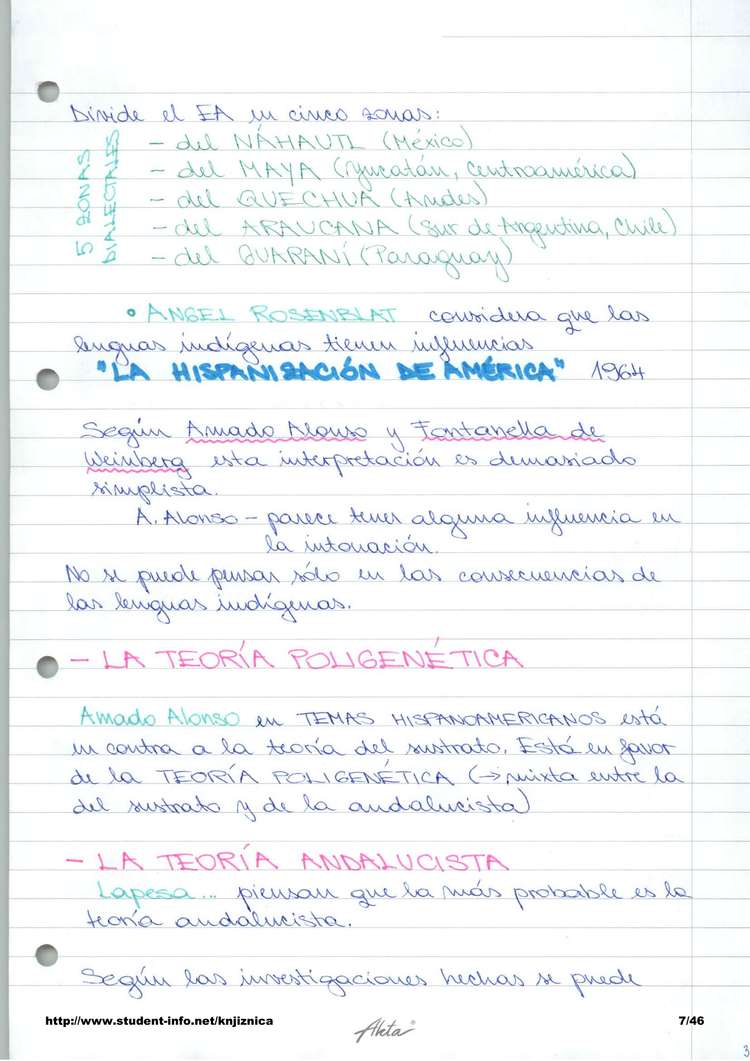 Divide el EA en cinco zonas:
5 ZONAS DIALECTALES
- del NÁHAUTL (México)
- del MAYA (Yucatán, Centroamérica)
- del QUECHUA (Andes)
- del ARAUCANA (Sur de Argentina, Chile)
- del GUARANÍ (Paraguay)
• ANGEL ROSENBLAT considera que las
lenguas indígenas tienen influencias
"LA HISPANIZACIÓN DE AMÉRICA" 1964
Según Amado Alonso y Fontanella de
Weinberg esta interpretación es demasiado
simplista.
A. Alonso - parece tener alguna influencia en
la intonación.
No se puede pensar sólo en las consecuencias de
las lenguas indígenas.
- LA TEORÍA POLIGENÉTICA
Amado Alonso en TEMAS HISPANOAMERICANOS está
en contra a la teoría del sustrato. Está en favor
de la TEORÍA POLIGENÉTICA (→ mixta entre la
del sustrato y de la andalucista)
- LA TEORÍA ANDALUCISTA
Lapesa... piensan que la más probable es la
teoría andalucista.
Según las investigaciones hechas se puede
http://www.student-info.net/knjiznica
Akta
7/46
3